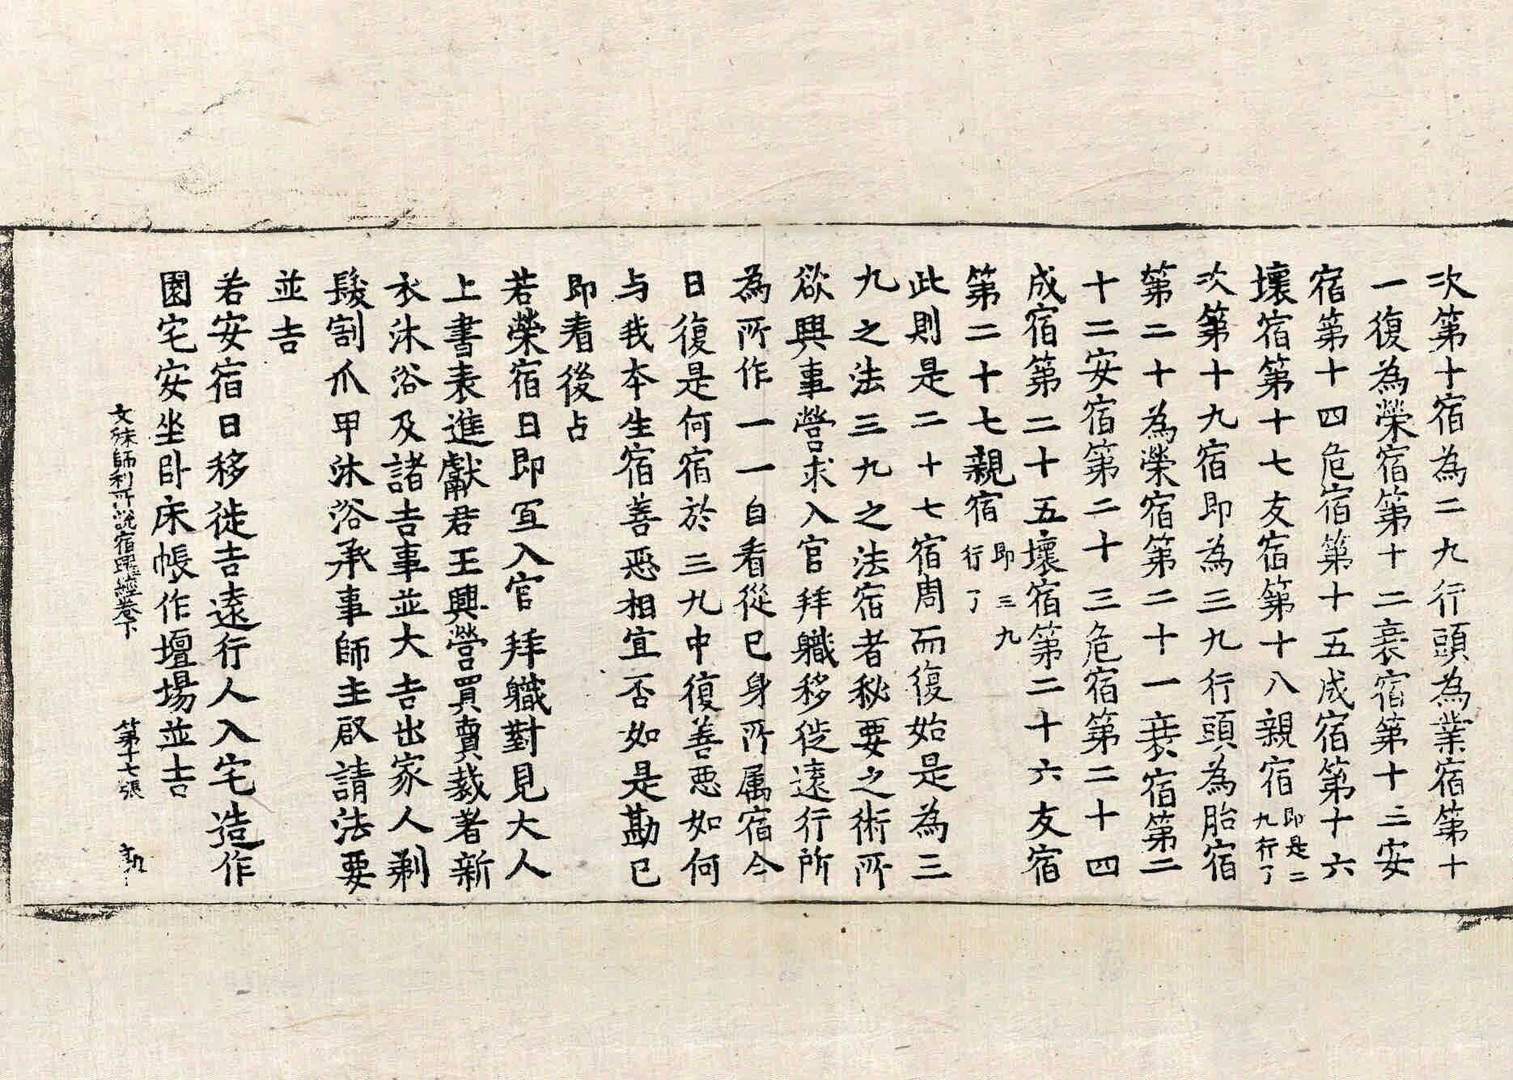 次第十宿為二九行頭為業宿第十
一復為榮宿第十二衰宿第十三安
宿第十四危宿第十五成宿第十六
壞宿第十七友宿第十八親宿即是二九行了
次第十九宿即為三九行頭為胎宿
第二十為榮宿第二十一衰宿第二
十二安宿第二十三危宿第二十四
成宿第二十五壞宿第二十六友宿
第二十七親宿即三九行了
此則是二十七宿周而復始是為三
九之法三九之法宿者秘要之術所
欲興事營求入官拜職移徙遠行所
為所作一一自看從已身所属宿今
日復是何宿於三九中復善惡如何
与我本生宿善惡相宜否如是勘已
即看後占
若榮宿日即宜入官拜職對見大人
上書表進獻君王興營買賣裁著新
衣沐浴及諸吉事並大吉出家人剃
髮割爪甲沐浴承事師主啟請法要
並吉
若安宿日移徙吉遠行人入宅造作
園宅安坐卧床帳作壇場並吉
文殊師利所說宿曜經卷下 第十七張